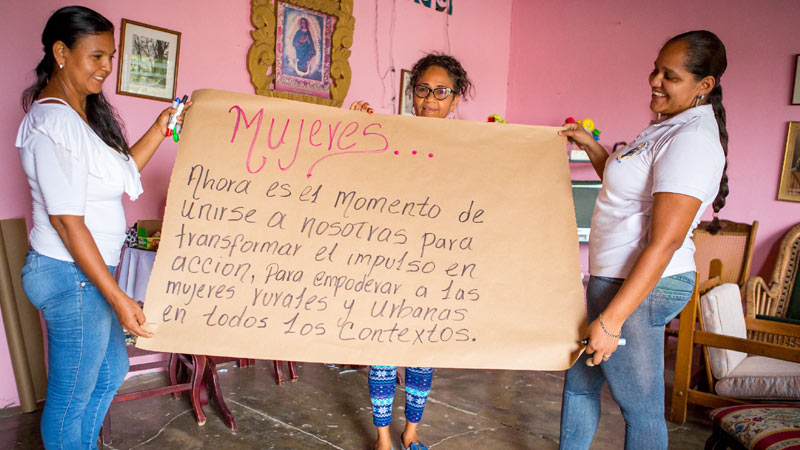 Mujeres...
Ahora es el momento de
unirse a nosotras para
transformar el impulso en
accion, para empoderar a las
mujeres rurales y urbanas
en todos los contextos.